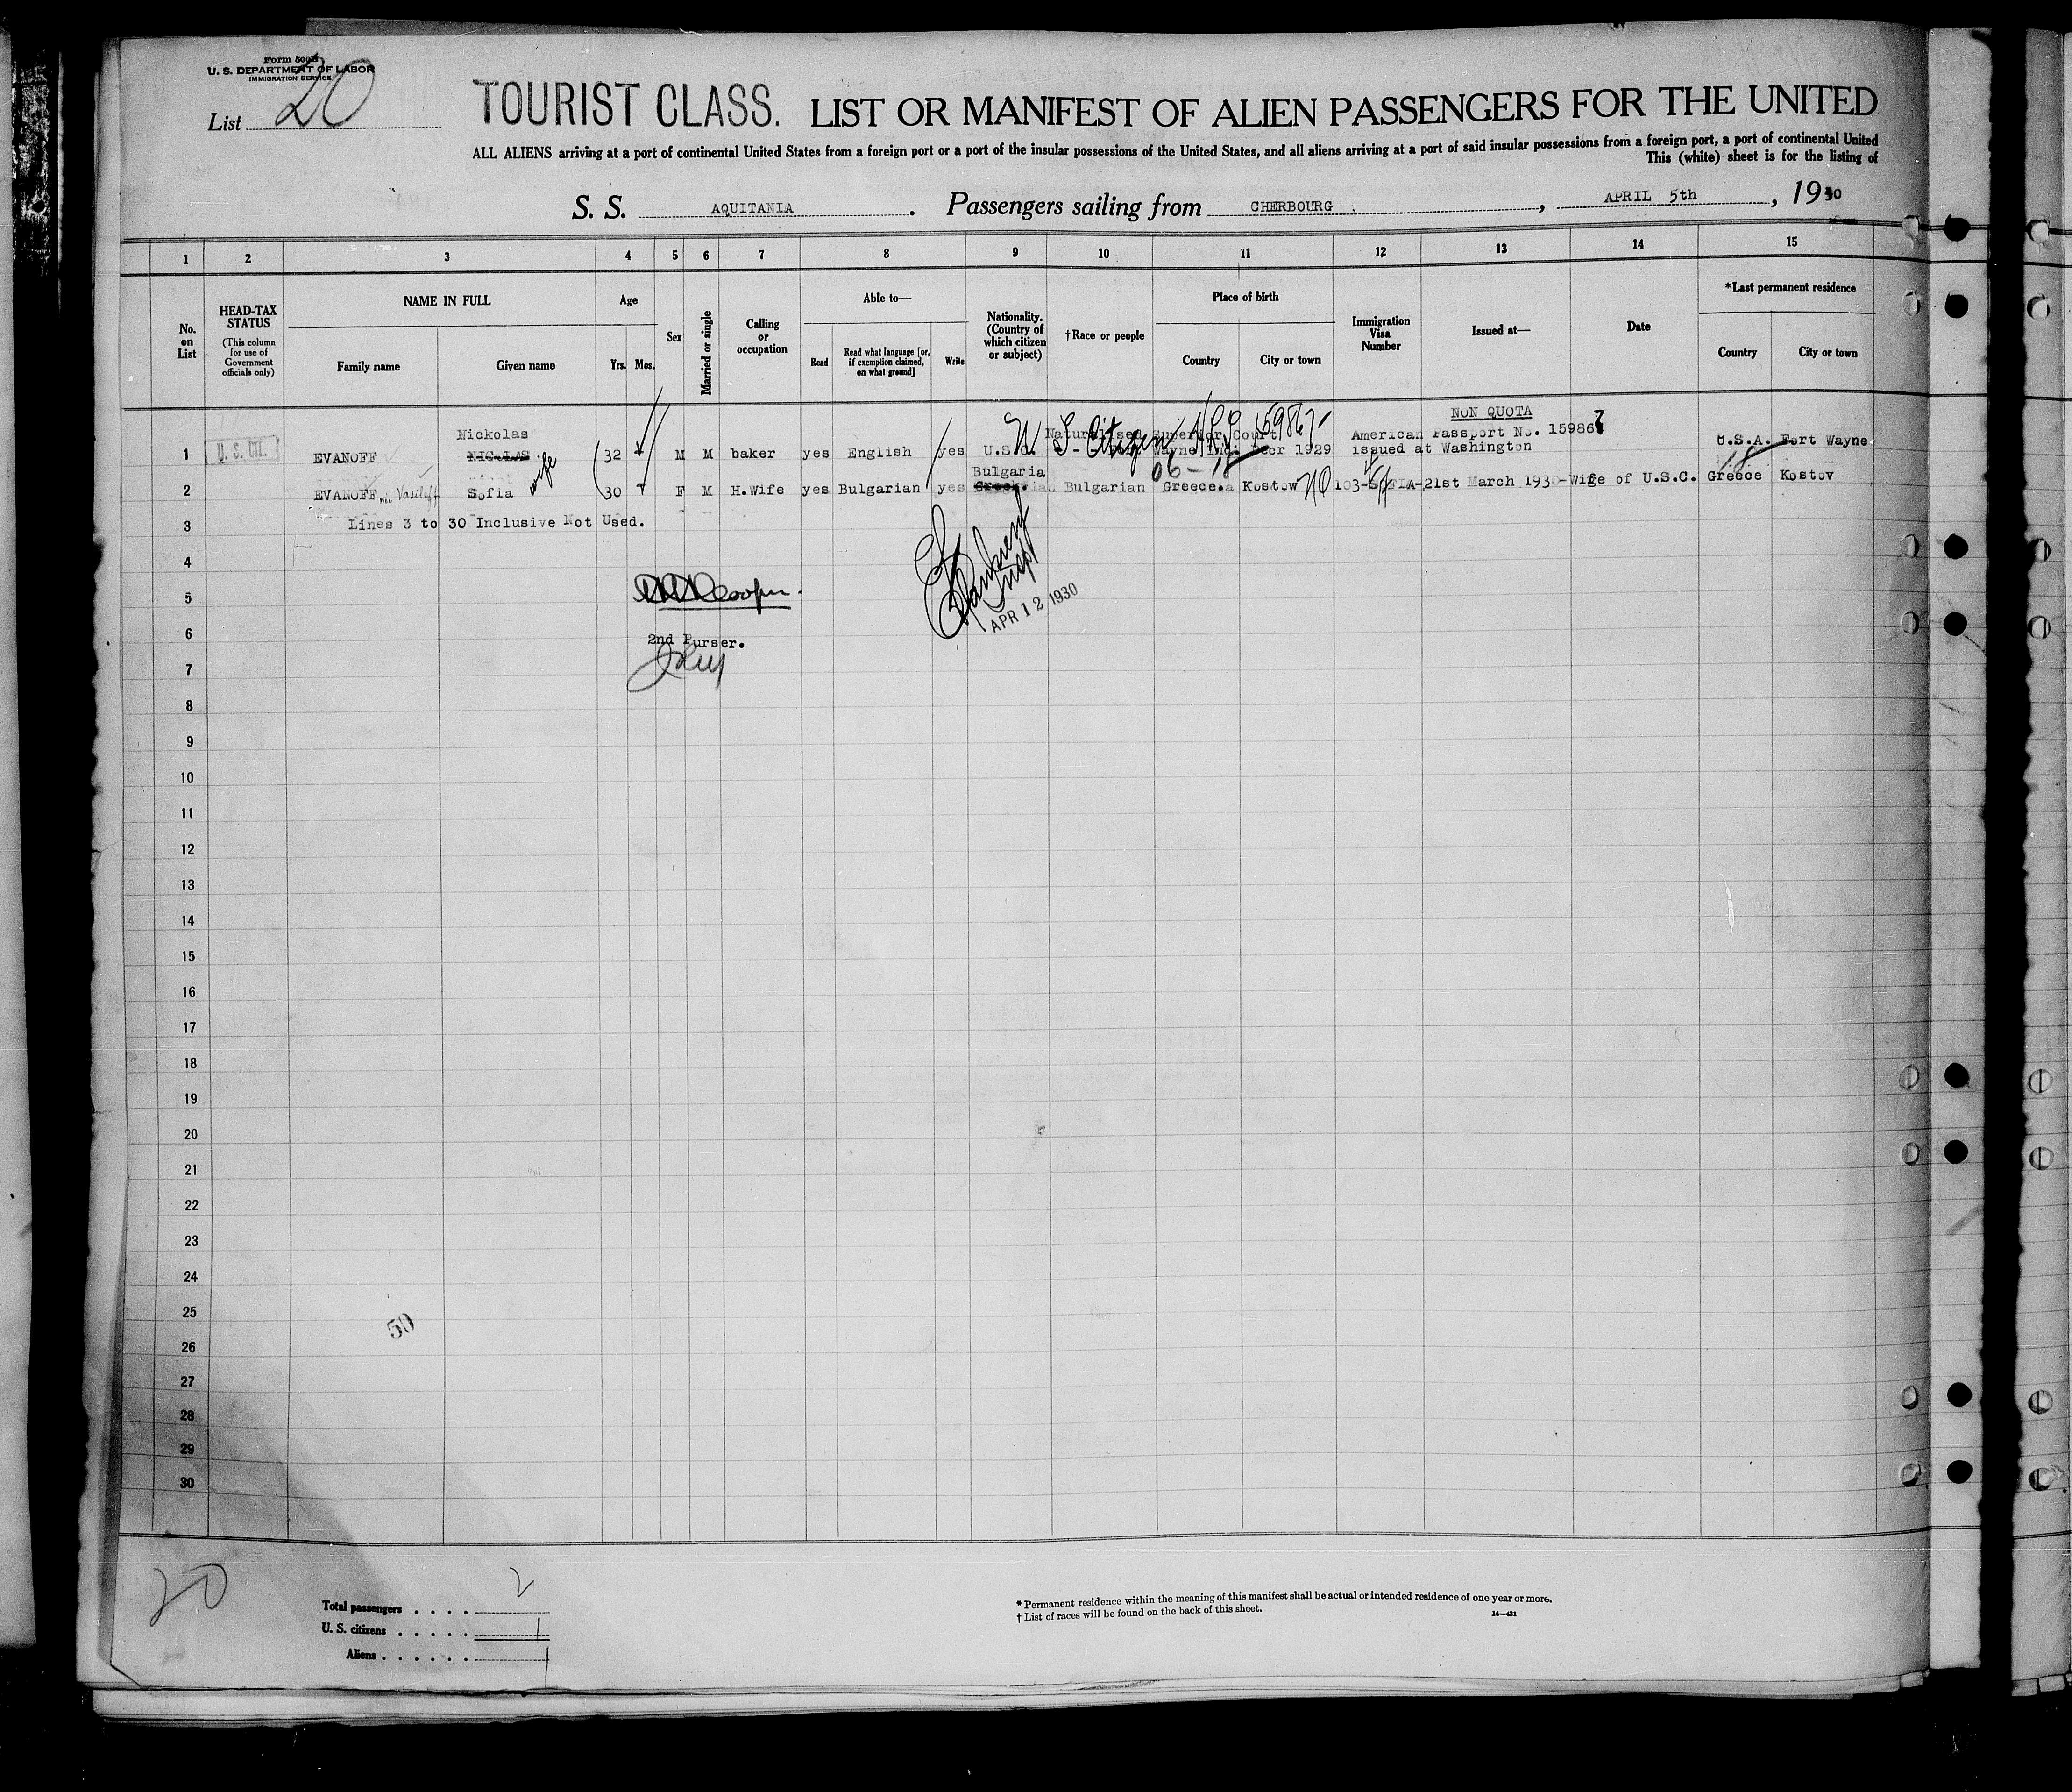 Form 500B
U. S. DEPARTMENT OF LABOR
IMMIGRATION SERVICE
List 20
TOURIST CLASS. LIST OR MANIFEST OF ALIEN PASSENGERS FOR THE UNITED
ALL ALIENS arriving at a port of continental United States from a foreign port or a port of the insular possessions of the United States, and all aliens arriving at a port of said insular possessions from a foreign port, a port of continental United
This (white) sheet is for the listing of
S. S. AQUITANIA. Passengers sailing from CHERBOURG, APRIL 5th, 1930
1 2 3 4 5 6 7 8 9 10 11 12 13 14 15
No. on List
HEAD-TAX STATUS (This column for use of Government officials only)
NAME IN FULL
Family name Given name
Age
Yrs. Mos.
Sex
Married or single
Calling or occupation
Able to—
Read Read what language [or, if exemption claimed, on what ground] Write
Nationality. (Country of which citizen or subject)
†Race or people
Place of birth
Country City or town
Immigration Visa Number
Issued at—
Date
*Last permanent residence
Country City or town
NON QUOTA
Nickolas Naturalised Superior Court American Passport No. 159867
U. S. Citizen 159867
1 U. S. CIT. EVANOFF NICOLAS 32 M M baker yes English yes U.S.C. Wayne Ind. 1929 issued at Washington U.S.A. Fort Wayne
wife
Bulgaria 06-18 18
2 EVANOFF Vasileff Sofia 30 F M H.Wife yes Bulgarian yes Greek. Bulgarian Greece. Kostow 103-SOFIA-21st March 1930-Wife of U.S.C. Greece Kostov
3 Lines 3 to 30 Inclusive Not Used.
4
5 Cooper.
APR 12 1930
6 2nd Purser.
7
8
9
10
11
12
13
14
15
16
17
18
19
20
21
22
23
24
25
50
26
27
28
29
30
20
Total passengers . . . . 2
U. S. citizens . . . . . 1
Aliens . . . . . . 1
* Permanent residence within the meaning of this manifest shall be actual or intended residence of one year or more.
† List of races will be found on the back of this sheet.
14—431